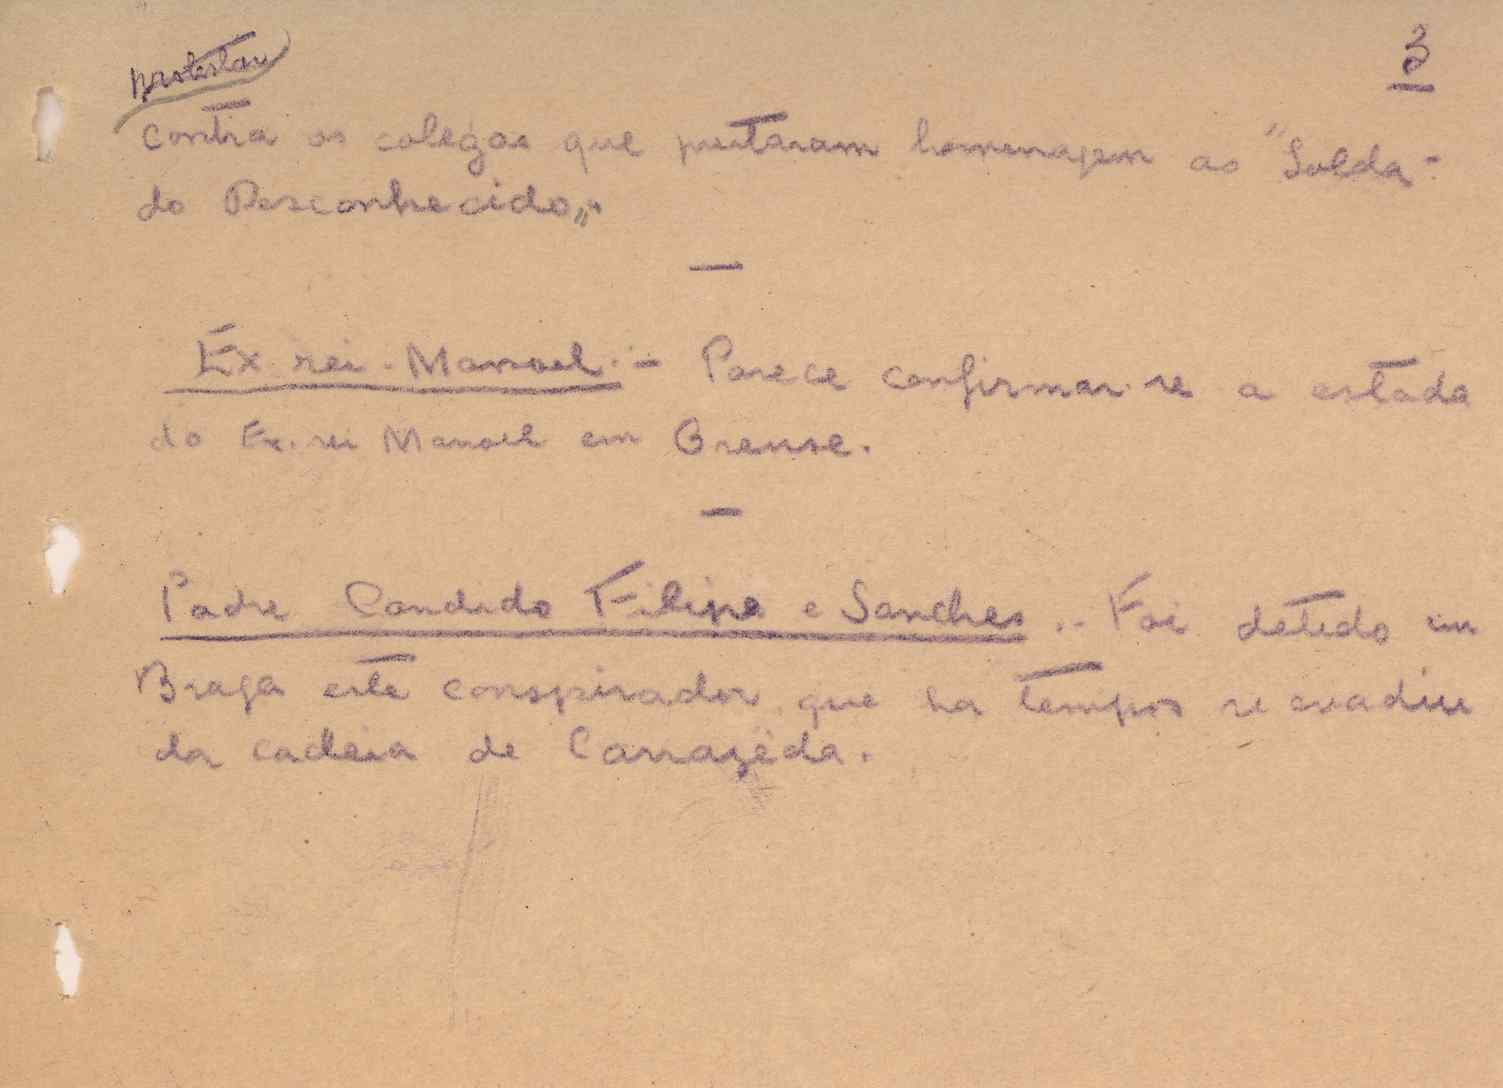 3
protestar
contra os colegas que prestaram homenagem ao "Solda-
do Desconhecido".
—
Ex-rei-Manoel:- Parece confirmar-se a estada
do Ex-rei Manoel em Orense.
—
Padre Candido Filipe e Sanches.. Foi detido em
Braga este conspirador que ha tempos se evadiu
da cadeia de Carrazêda.